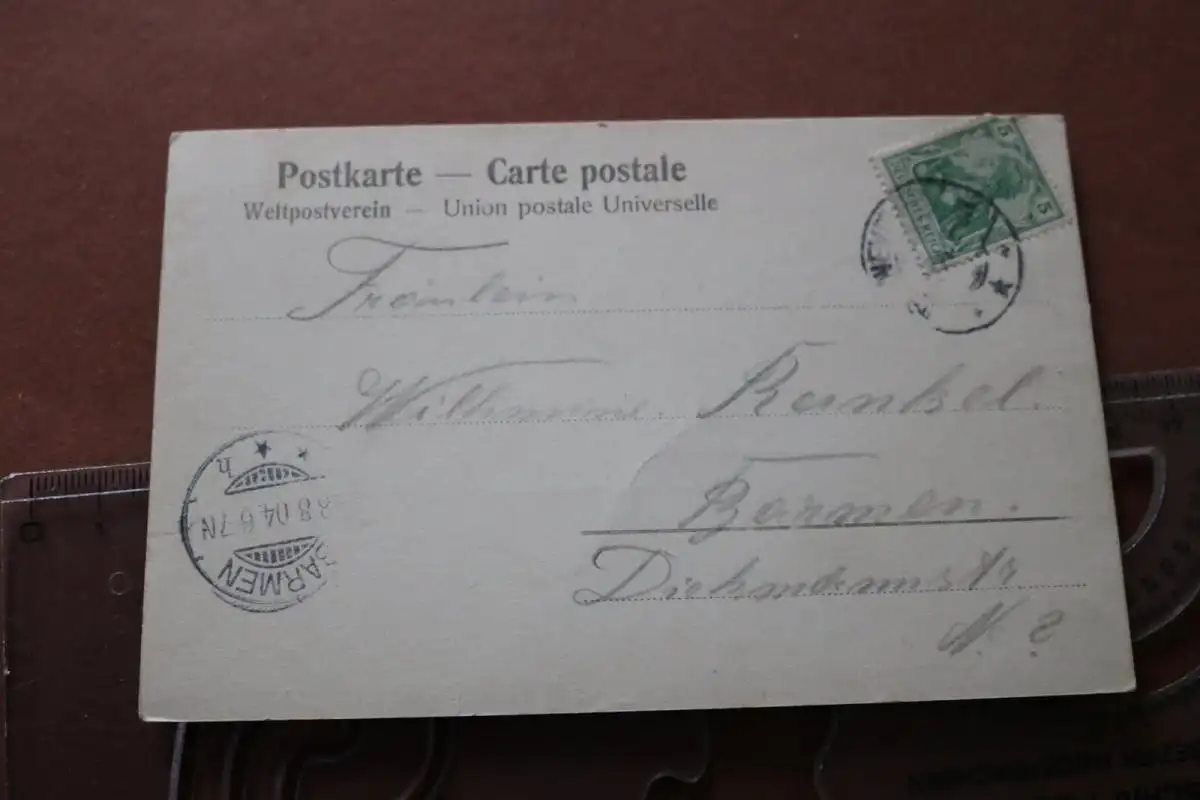 Postkarte — Carte postale
Weltpostverein — Union postale Universelle
Fräulein
Wilhmine. Runkel.
Barmen.
Diekmannstr
N. 2
5
5
DEUTSCHES REICH
BARMEN
8 04 6-7N
h
0